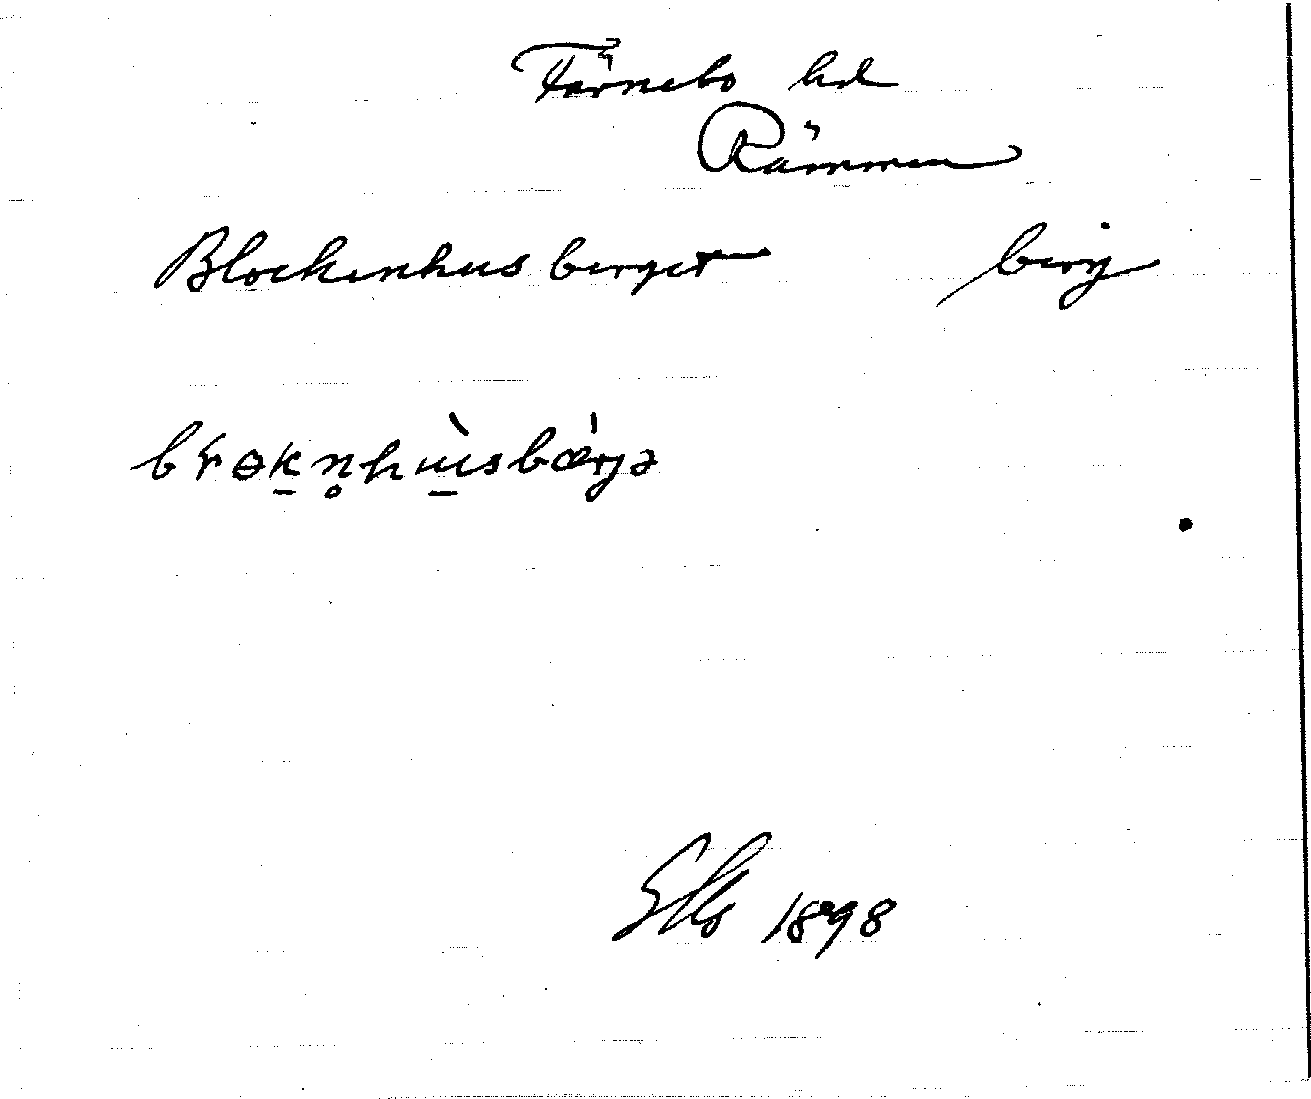 Färnebo hd
Rämmen
Blockenhusberget berg
bɽɵk̠n̥hu̠̇̀sbæ̀rjə
1898